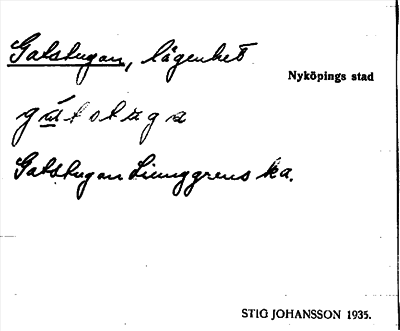 Gatstugan, lägenhet
Nyköpings stad
gát stuga
Gatstugan Liunggrenska.
STIG JOHANSSON 1935.